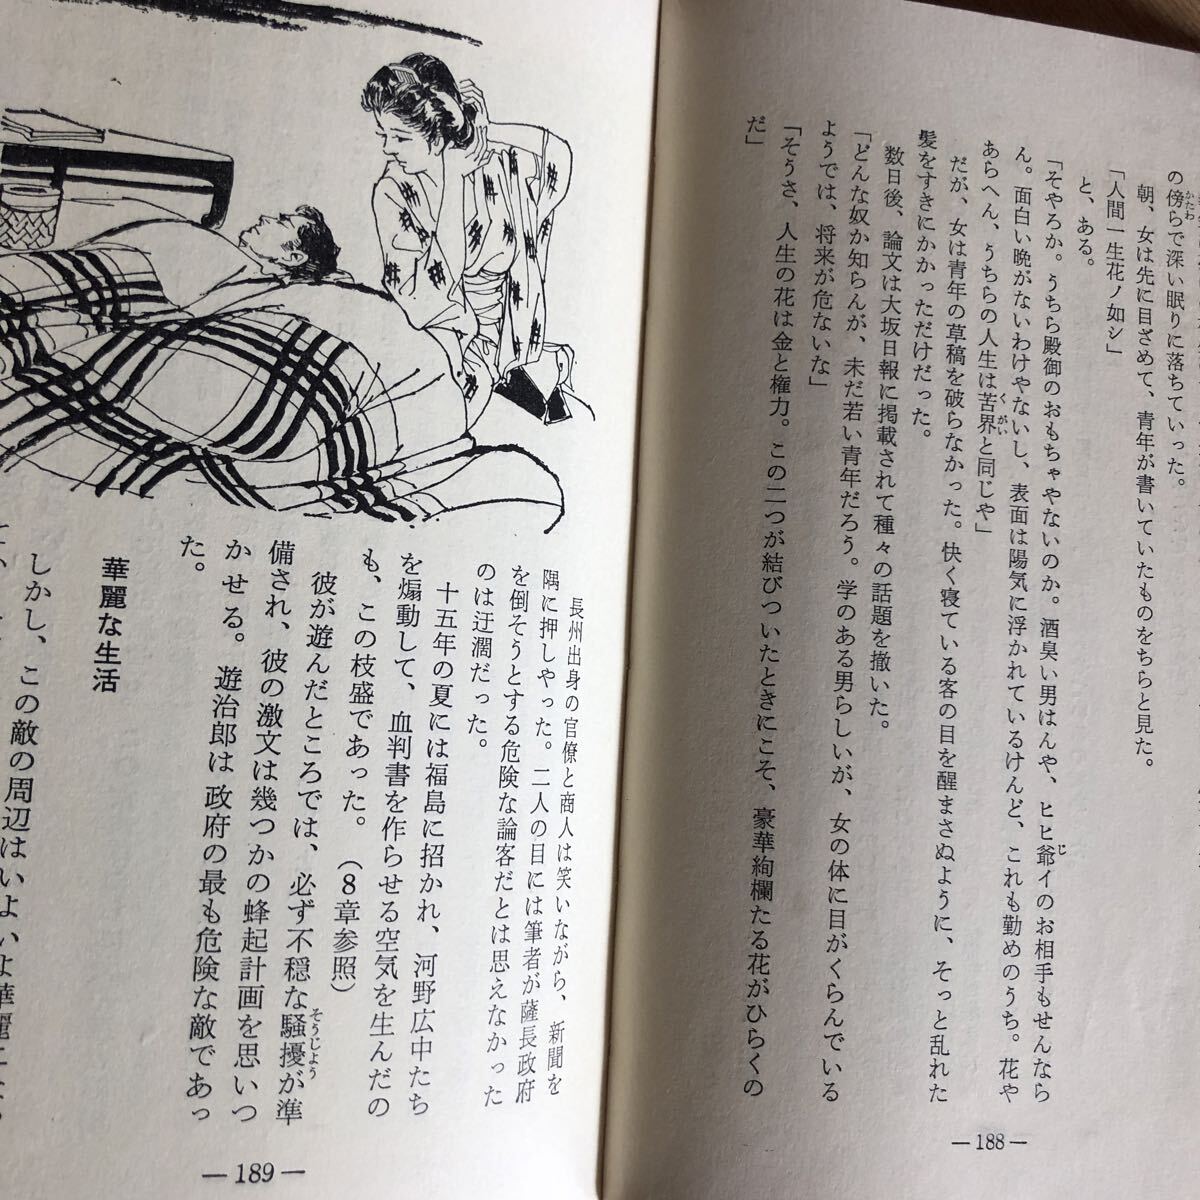 の傍らで深い眠りに落ちていった。
かたわ
朝、女は先に目ざめて、青年が書いていたものをちらと見た。
「人間一生花ノ如シ」
と、ある。
「そやろか。うちら殿御のおもちゃやないのか。酒臭い男はんや、ヒヒ爺イのお相手もせんなら
じ
ん。面白い晩がないわけやないし、表面は陽気に浮かれているけんど、これも勤めのうち。花や
あらへん、うちらの人生は苦界と同じや」
くがい
だが、女は青年の草稿を破らなかった。快く寝ている客の目を醒まさぬように、そっと乱れた
髪をすきにかかっただけだった。
数日後、論文は大坂日報に掲載されて種々の話題を撤いた。
「どんな奴か知らんが、未だ若い青年だろう。学のある男らしいが、女の体に目がくらんでいる
ようでは、将来が危ないな」
「そうさ、人生の花は金と権力。この二つが結びついたときにこそ、豪華絢欄たる花がひらくの
だ」
—188—
長州出身の官僚と商人は笑いながら、新聞を
隅に押しやった。二人の目には筆者が薩長政府
を倒そうとする危険な論客だとは思えなかった
のは迂濶だった。
十五年の夏には福島に招かれ、河野広中たち
を煽動して、血判書を作らせる空気を生んだの
も、この枝盛であった。（8章参照）
彼が遊んだところでは、必ず不穏な騒擾が準
そうじよう
備され、彼の激文は幾つかの蜂起計画を思いつ
かせる。遊治郎は政府の最も危険な敵であっ
た。
華麗な生活
しかし、この敵の周辺はいよいよ華麗になっ
—189—